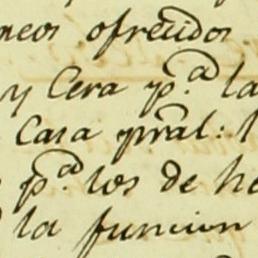 neos ofrecidos
y Cera p.ª la
Casa pral: l
p.ª los de he
la funcion